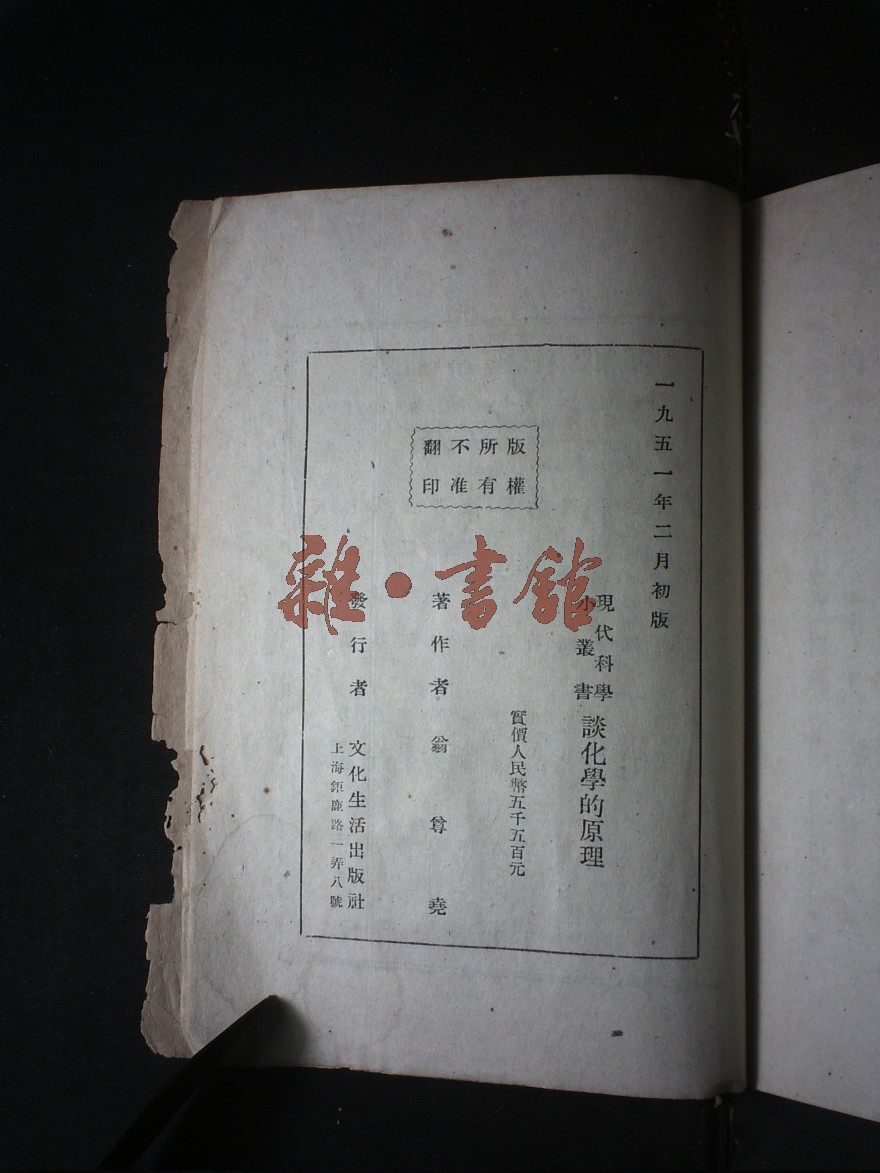 一九五一年二月初版
現代科學
小叢書
談化學的原理
實價人民幣五千五百元
版權
所有
不准
翻印
著作者 翁尊堯
發行者 文化生活出版社
上海鉅鹿路一弄八號
雜·書館